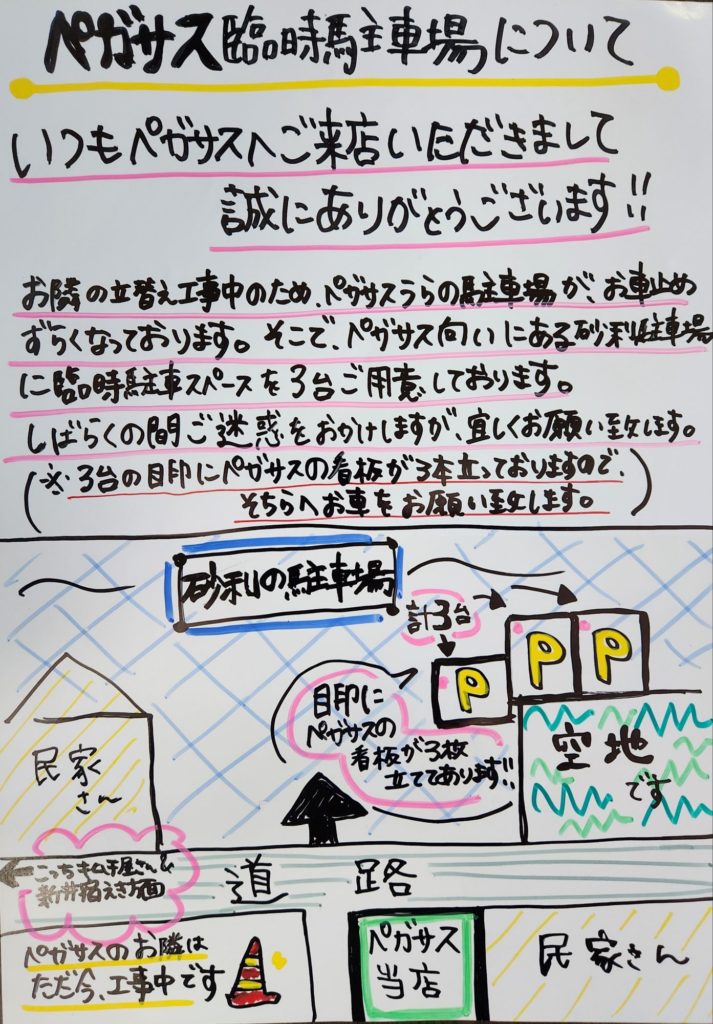 ペガサス臨時駐車場について
いつもペガサスへご来店いただきまして
誠にありがとうございます!!
お隣の立替え工事中のため、ペガサスうらの駐車場が、お車止め
ずらくなっております。そこで、ペガサス向いにある砂利駐車場
に臨時駐車スペースを3台ご用意しております。
しばらくの間ご迷惑をおかけしますが、宜しくお願い致します。
(※3台の目印にペガサスの看板が3本立っておりますので、
そちらへお車をお願い致します。)
砂利の駐車場
計3台
P
P
P
目印に
ペガサスの
看板が3枚
立ててあります!!
民家
さん
空地
です
こっちキムチ屋さん&
新井宿えき方面
道路
ペガサスのお隣は
ただ今、工事中です
ペガサス
当店
民家さん